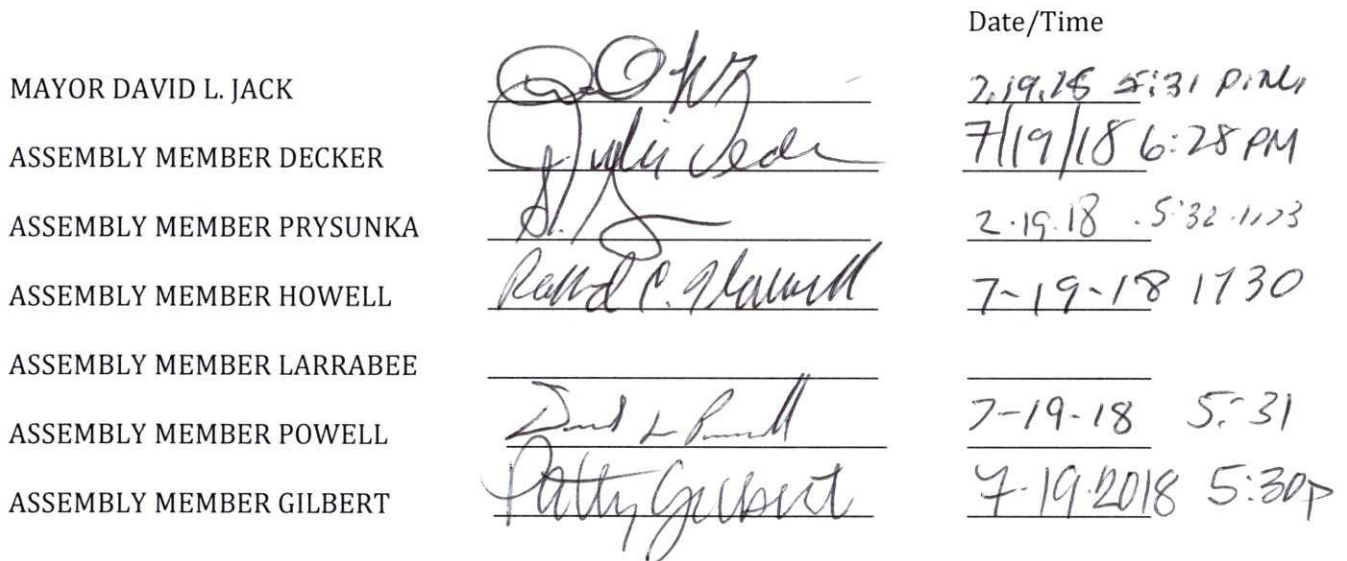 Date/Time
MAYOR DAVID L. JACK 7.19.18 5:31 P.M.
ASSEMBLY MEMBER DECKER Julie Decker 7/19/18 6:28 PM
ASSEMBLY MEMBER PRYSUNKA 7.19.18 5:32
ASSEMBLY MEMBER HOWELL 7-19-18 1730
ASSEMBLY MEMBER LARRABEE
ASSEMBLY MEMBER POWELL David L Powell 7-19-18 5:31
ASSEMBLY MEMBER GILBERT Patty Gilbert 7.19.2018 5:30p